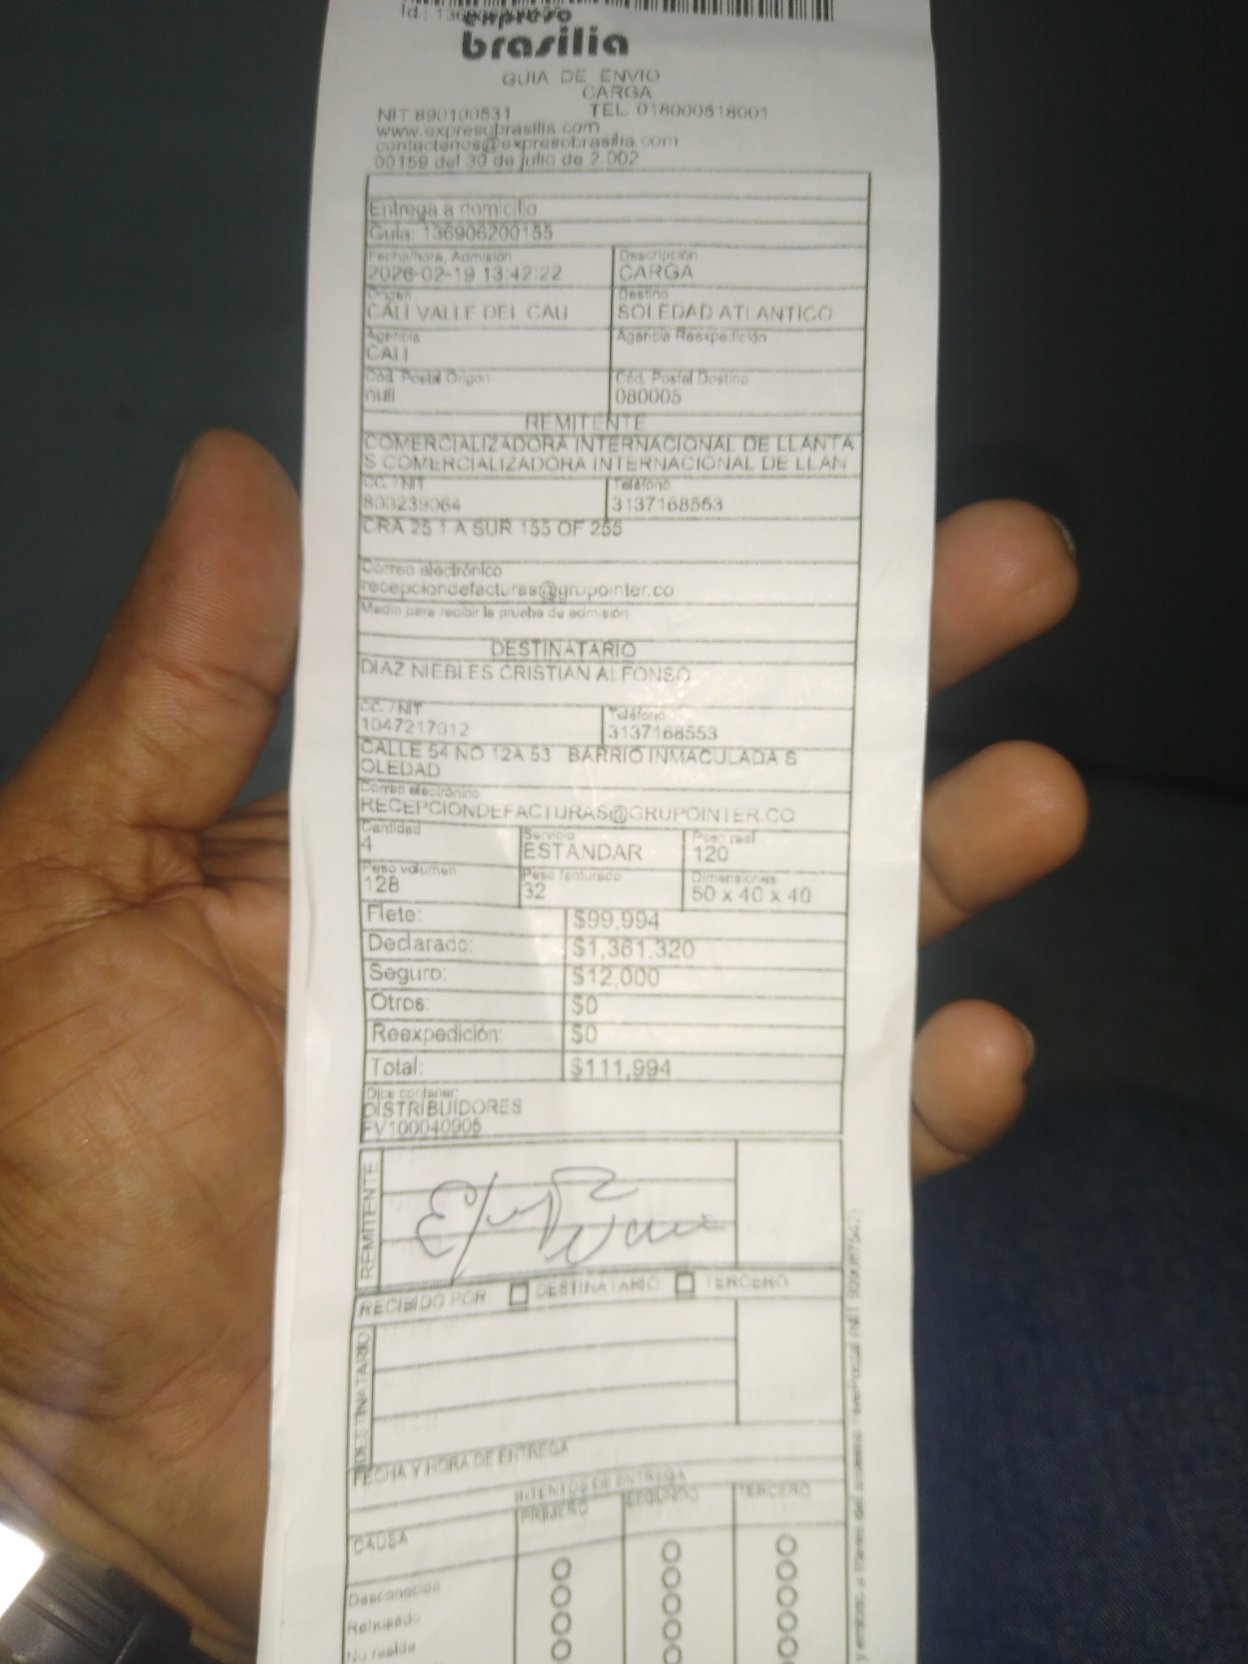 Id.: 136906200155
expreso
brasilia
GUIA DE ENVIO
CARGA
NIT 890100531 TEL. 018000518001
www.expresobrasilia.com
contactenos@expresobrasilia.com
00159 del 30 de julio de 2.002
Entrega a domicilio
Guia: 136906200155
Fecha/hora. Admisión Descripción
2026-02-19 13:42:22 CARGA
Origen Destino
CALI VALLE DEL CAU SOLEDAD ATLANTICO
Agencia Agencia Reexpedición
CALI
Cód. Postal Origen Cód. Postal Destino
null 080005
REMITENTE
COMERCIALIZADORA INTERNACIONAL DE LLANTA
S COMERCIALIZADORA INTERNACIONAL DE LLAN
CC. / NIT Teléfono
800239064 3137168553
CRA 25 1 A SUR 155 OF 255
Correo electrónico
recepciondefacturas@grupointer.co
Medio para recibir la prueba de admisión
DESTINATARIO
DIAZ NIEBLES CRISTIAN ALFONSO
CC. / NIT Teléfono
1047217012 3137168553
CALLE 54 NO 12A 53 BARRIO INMACULADA S
OLEDAD
Correo electrónico
RECEPCIONDEFACTURAS@GRUPOINTER.CO
Cantidad Servicio Peso real
4 ESTANDAR 120
Peso volumen Peso facturado Dimensiones
128 32 50 x 40 x 40
Flete: $99,994
Declarado: $1,361,320
Seguro: $12,000
Otros: $0
Reexpedición: $0
Total: $111,994
Dice contener:
DISTRIBUIDORES
FV100040906
REMITENTE
RECIBIDO POR DESTINATARIO TERCERO
DESTINATARIO
FECHA Y HORA DE ENTREGA
INTENTOS DE ENTREGA
CAUSA PRIMERO SEGUNDO TERCERO
Desconocido
Rehusado
No reside